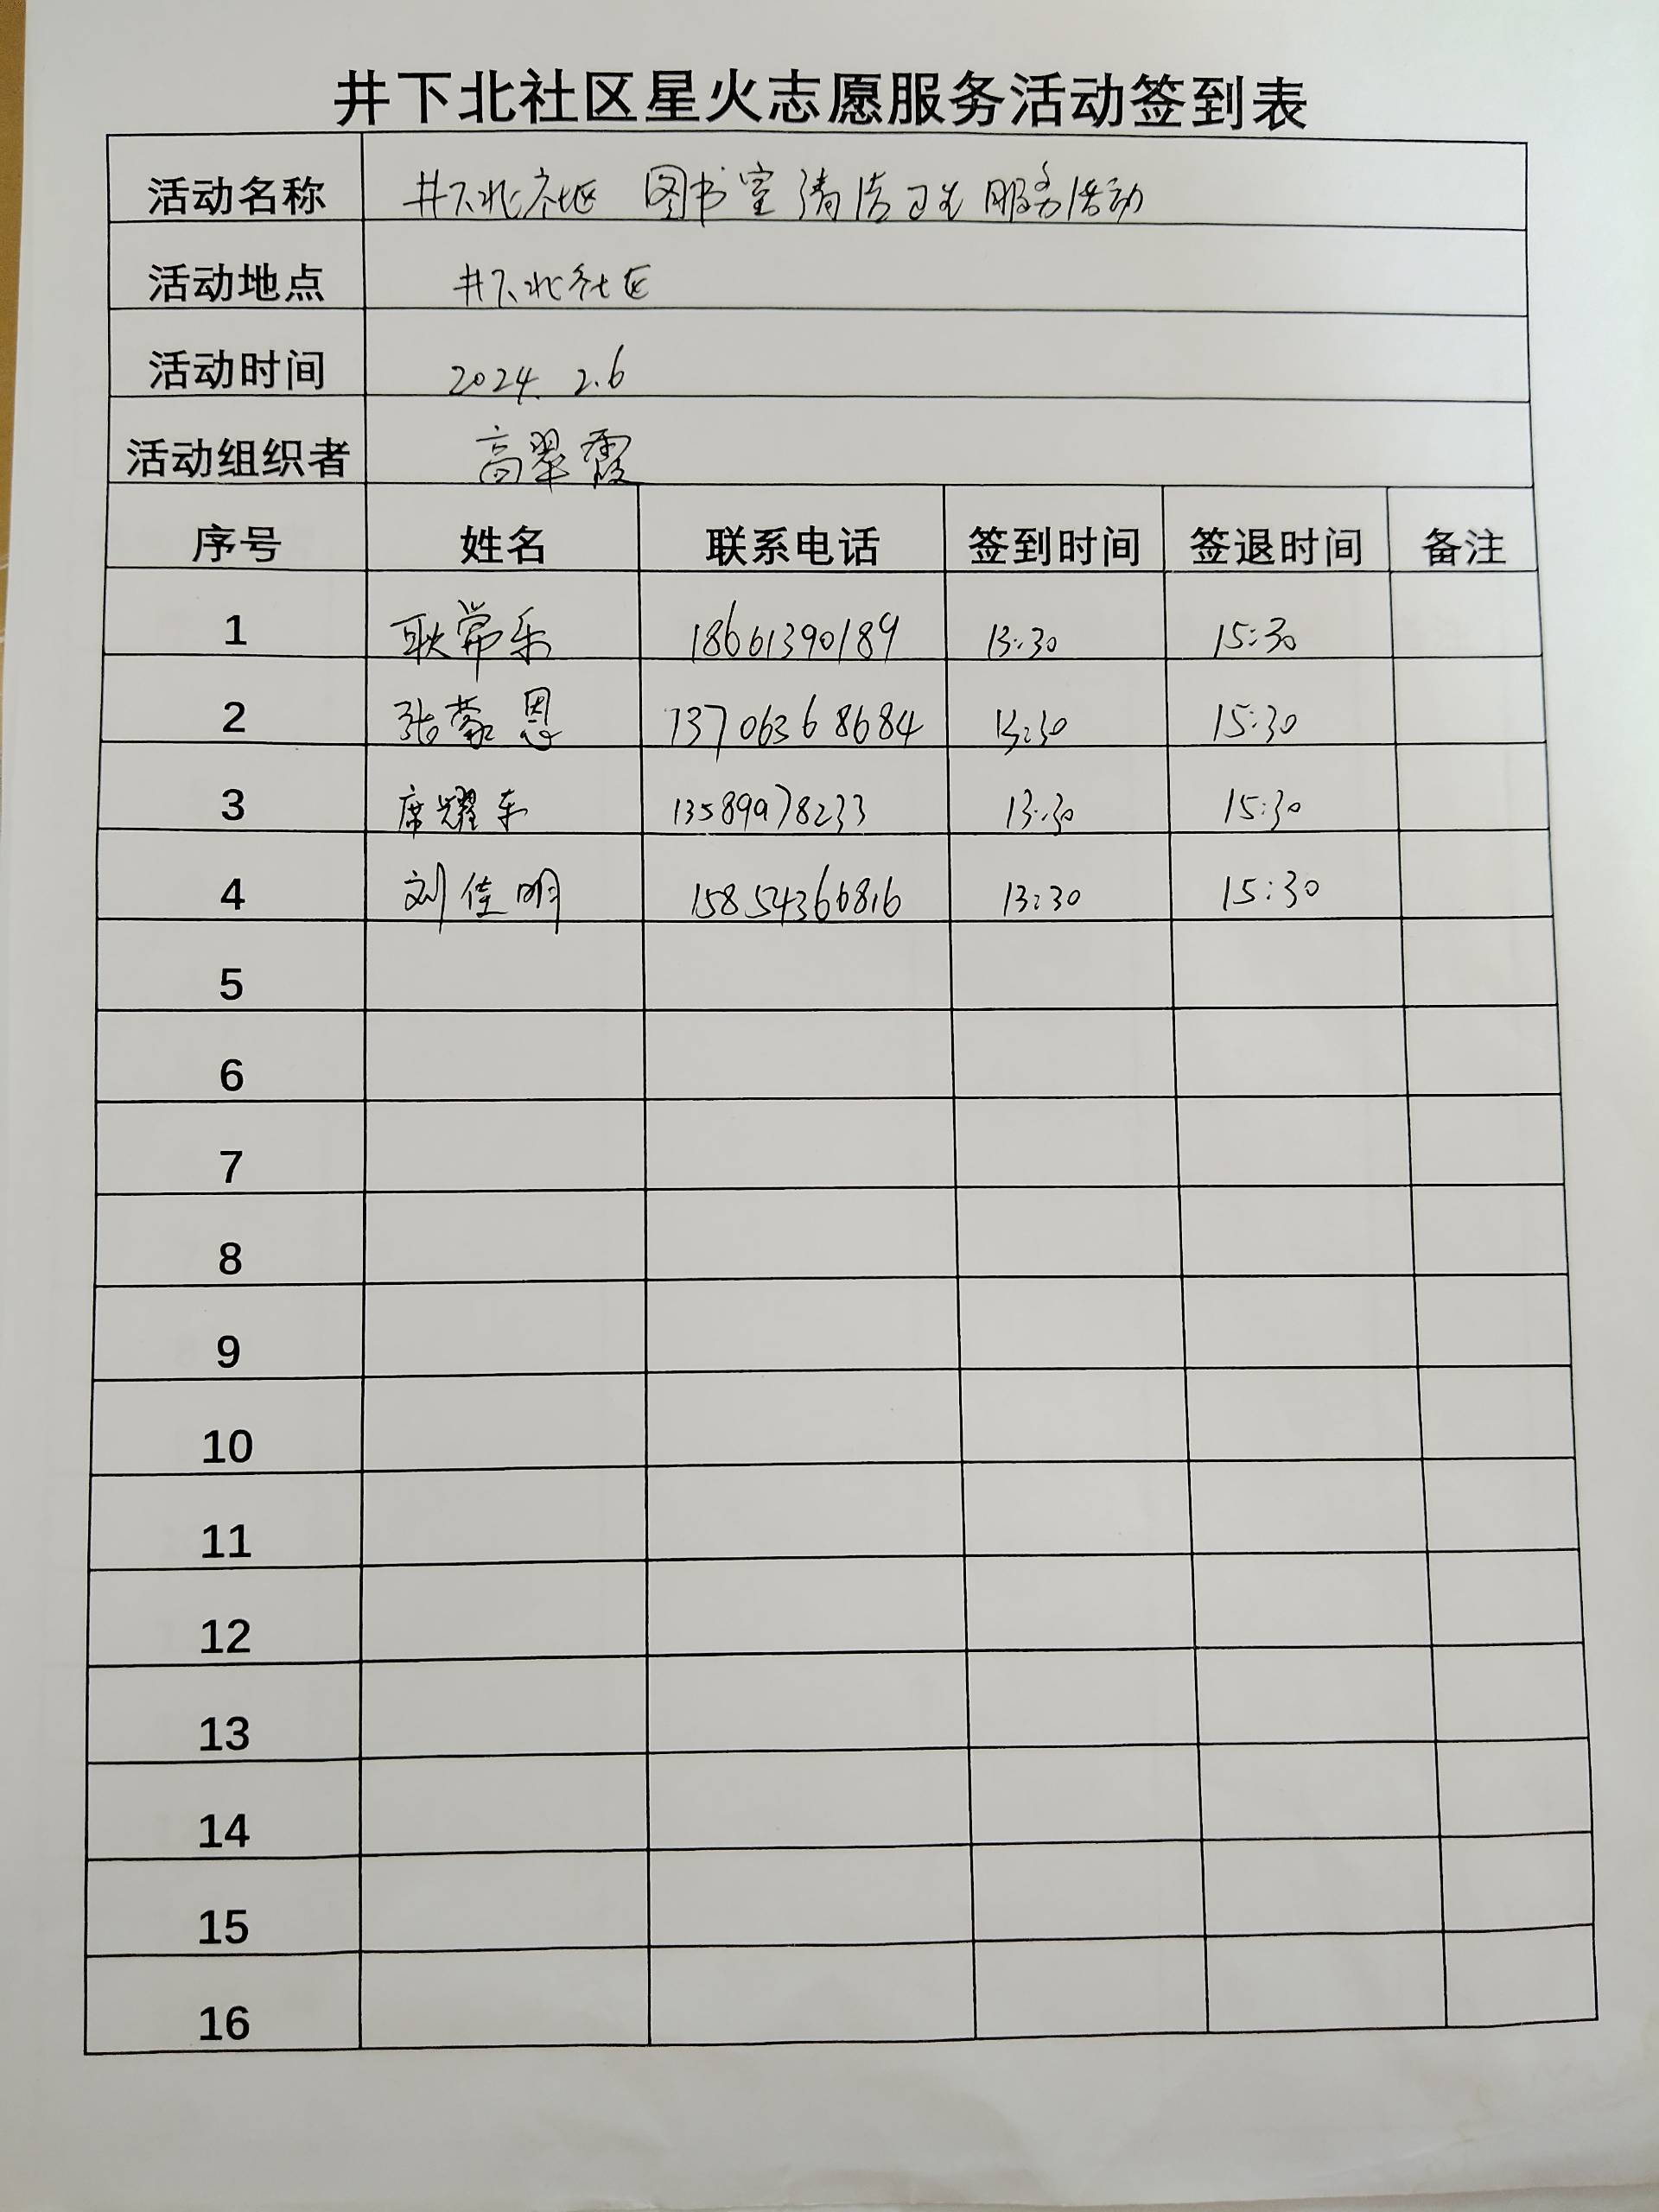 井下北社区星火志愿服务活动签到表
活动名称 井下北社区 图书室清洁卫生服务活动
活动地点 井下北社区
活动时间 2024.2.6
活动组织者 高翠霞
序号 姓名 联系电话 签到时间 签退时间 备注
1 耿常乐 18661390189 13:30 15:30
2 张蒙恩 13706368684 13:30 15:30
3 席耀东 13589978233 13:30 15:30
4 刘佳明 15854366816 13:30 15:30
5
6
7
8
9
10
11
12
13
14
15
16